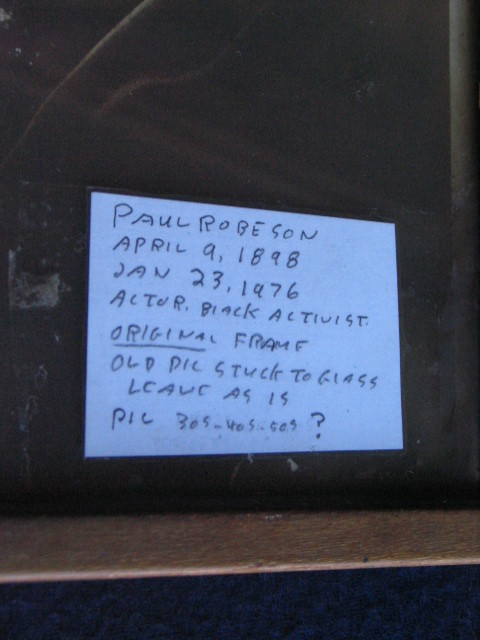 PAUL ROBESON
APRIL 9, 1898
JAN 23, 1976
ACTOR. BLACK ACTIVIST.
ORIGINAL FRAME
OLD PIC STUCK TO GLASS
LEAVE AS IS
PIC 30s-40s-50s ?